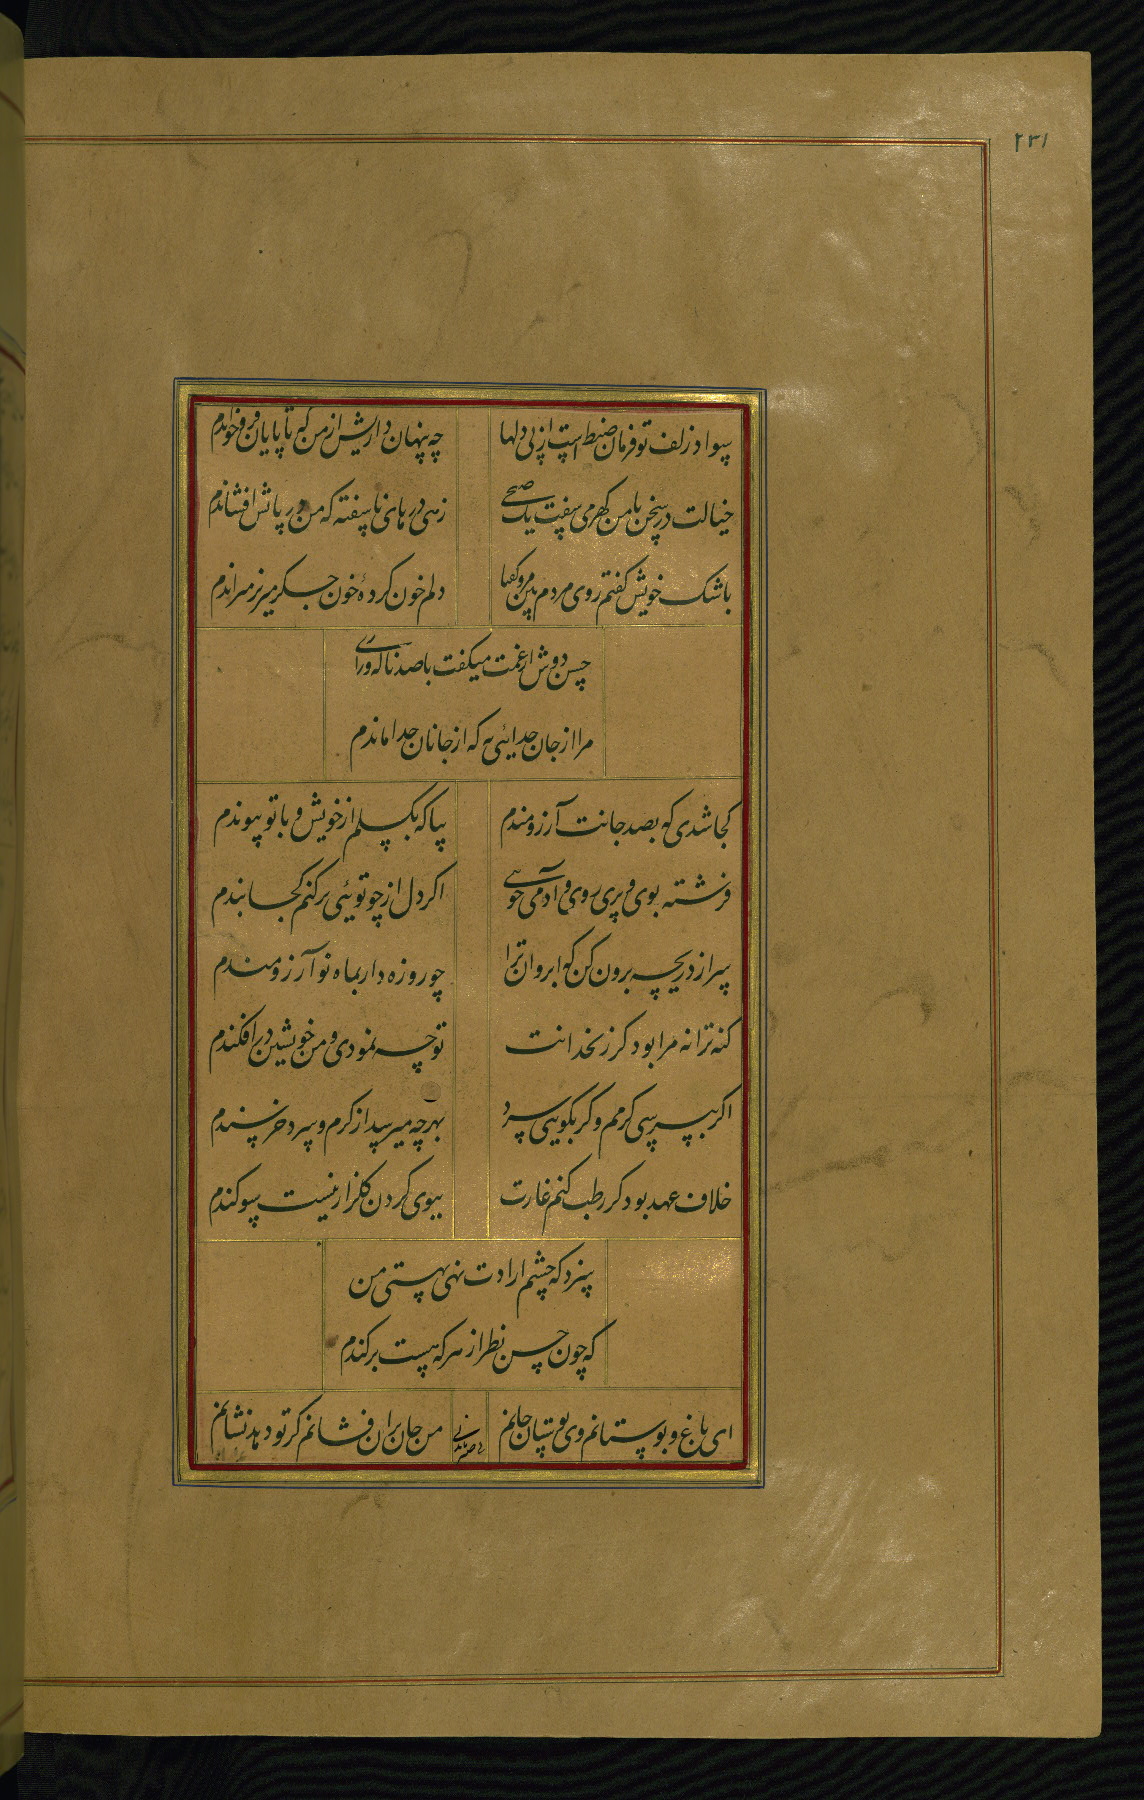 ۲۳۱
سواد زلف تو فرمان ضبط است از پی دلها چه پنهان داریش از من که تا پایان فرو خواندم
خیالت در سخن با من گهر می سفت یک صبحی زهی درهای ناسفته که من در پاش افشاندم
باشک خویش گفتم روی مردم دلم خون کردهٔ خون جگر میریز میراندم
حسن دوش از غمت میگفت با صد ناله و زاری
مرا از جان جدایئی به که از جانان جدا ماندم
کجا شدی که بصد جانت آرزومندم بیا که بگسلم از خویش و با تو پیوندم
فرشته بوی و پری روی و آدمی خویی اگر دل از چو توئی برکنم کجا بندم
سر از دریچه برون کن که ابروان ترا چو روزه دار بماه نو آرزومندم
گنه ترا نه مرا بود کز زنخدانت تو چه نمودی و من خویشتن در افکندم
اگر بپرسی گرمم و گر بگویی سرد بهر چه میرسد از گرم و سرد خرسندم
خلاف عهد بود گر رطب کنم غارت ببوی کردن گلزار نیست سوگندم
سزد که چشم ارادت نهی بهستی من
که چون حسن نظر از هر که هست برکندم
ای باغ و بوستانم وی بوستان جانم من جان بران فشانم کز تو دهد نشانم